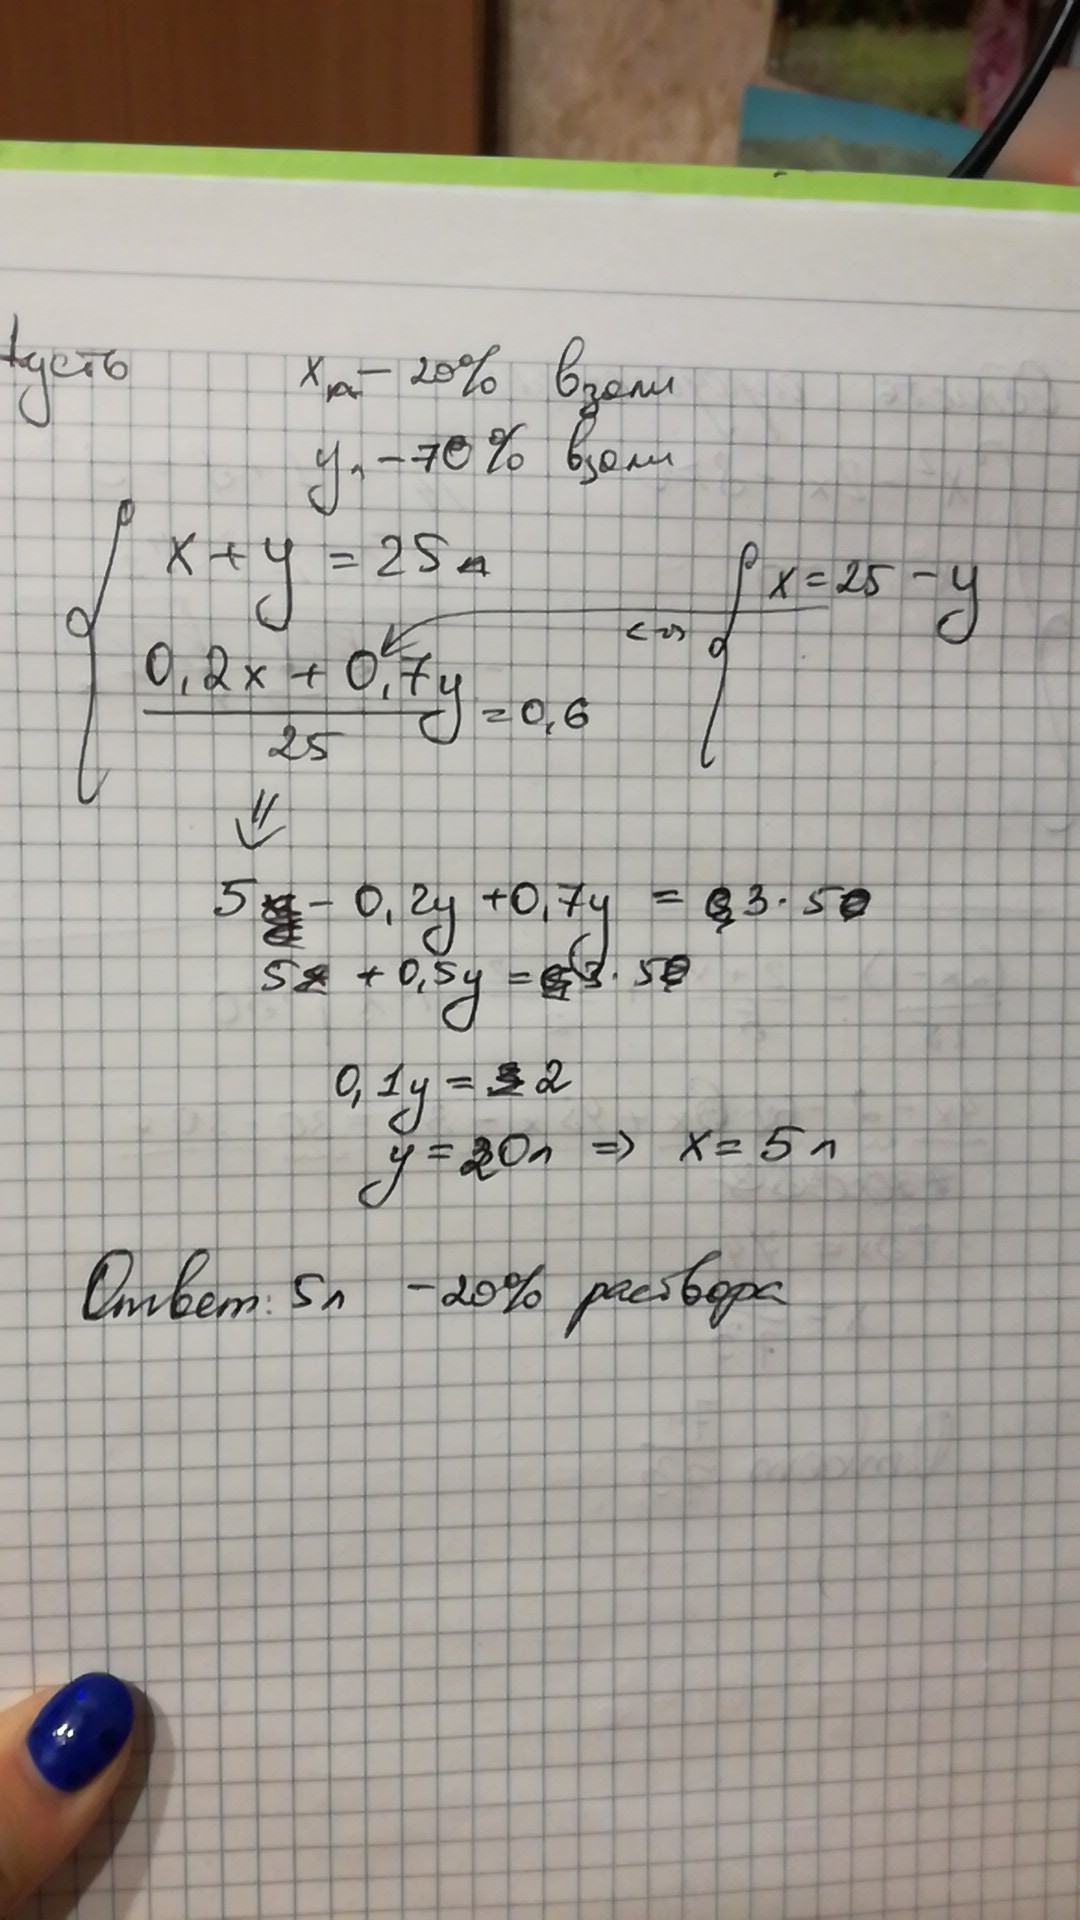 Пусть x л - 20% взяли
y л - 70% взяли
x + y = 25 л
x = 25 - y
<=>
0,2x + 0,7y
= 0,6
25
5 - 0,2y + 0,7y = 3 · 5
5 + 0,5y = 3 · 5
0,1y = 2
y = 20 л => x = 5 л
Ответ: 5 л - 20% раствора